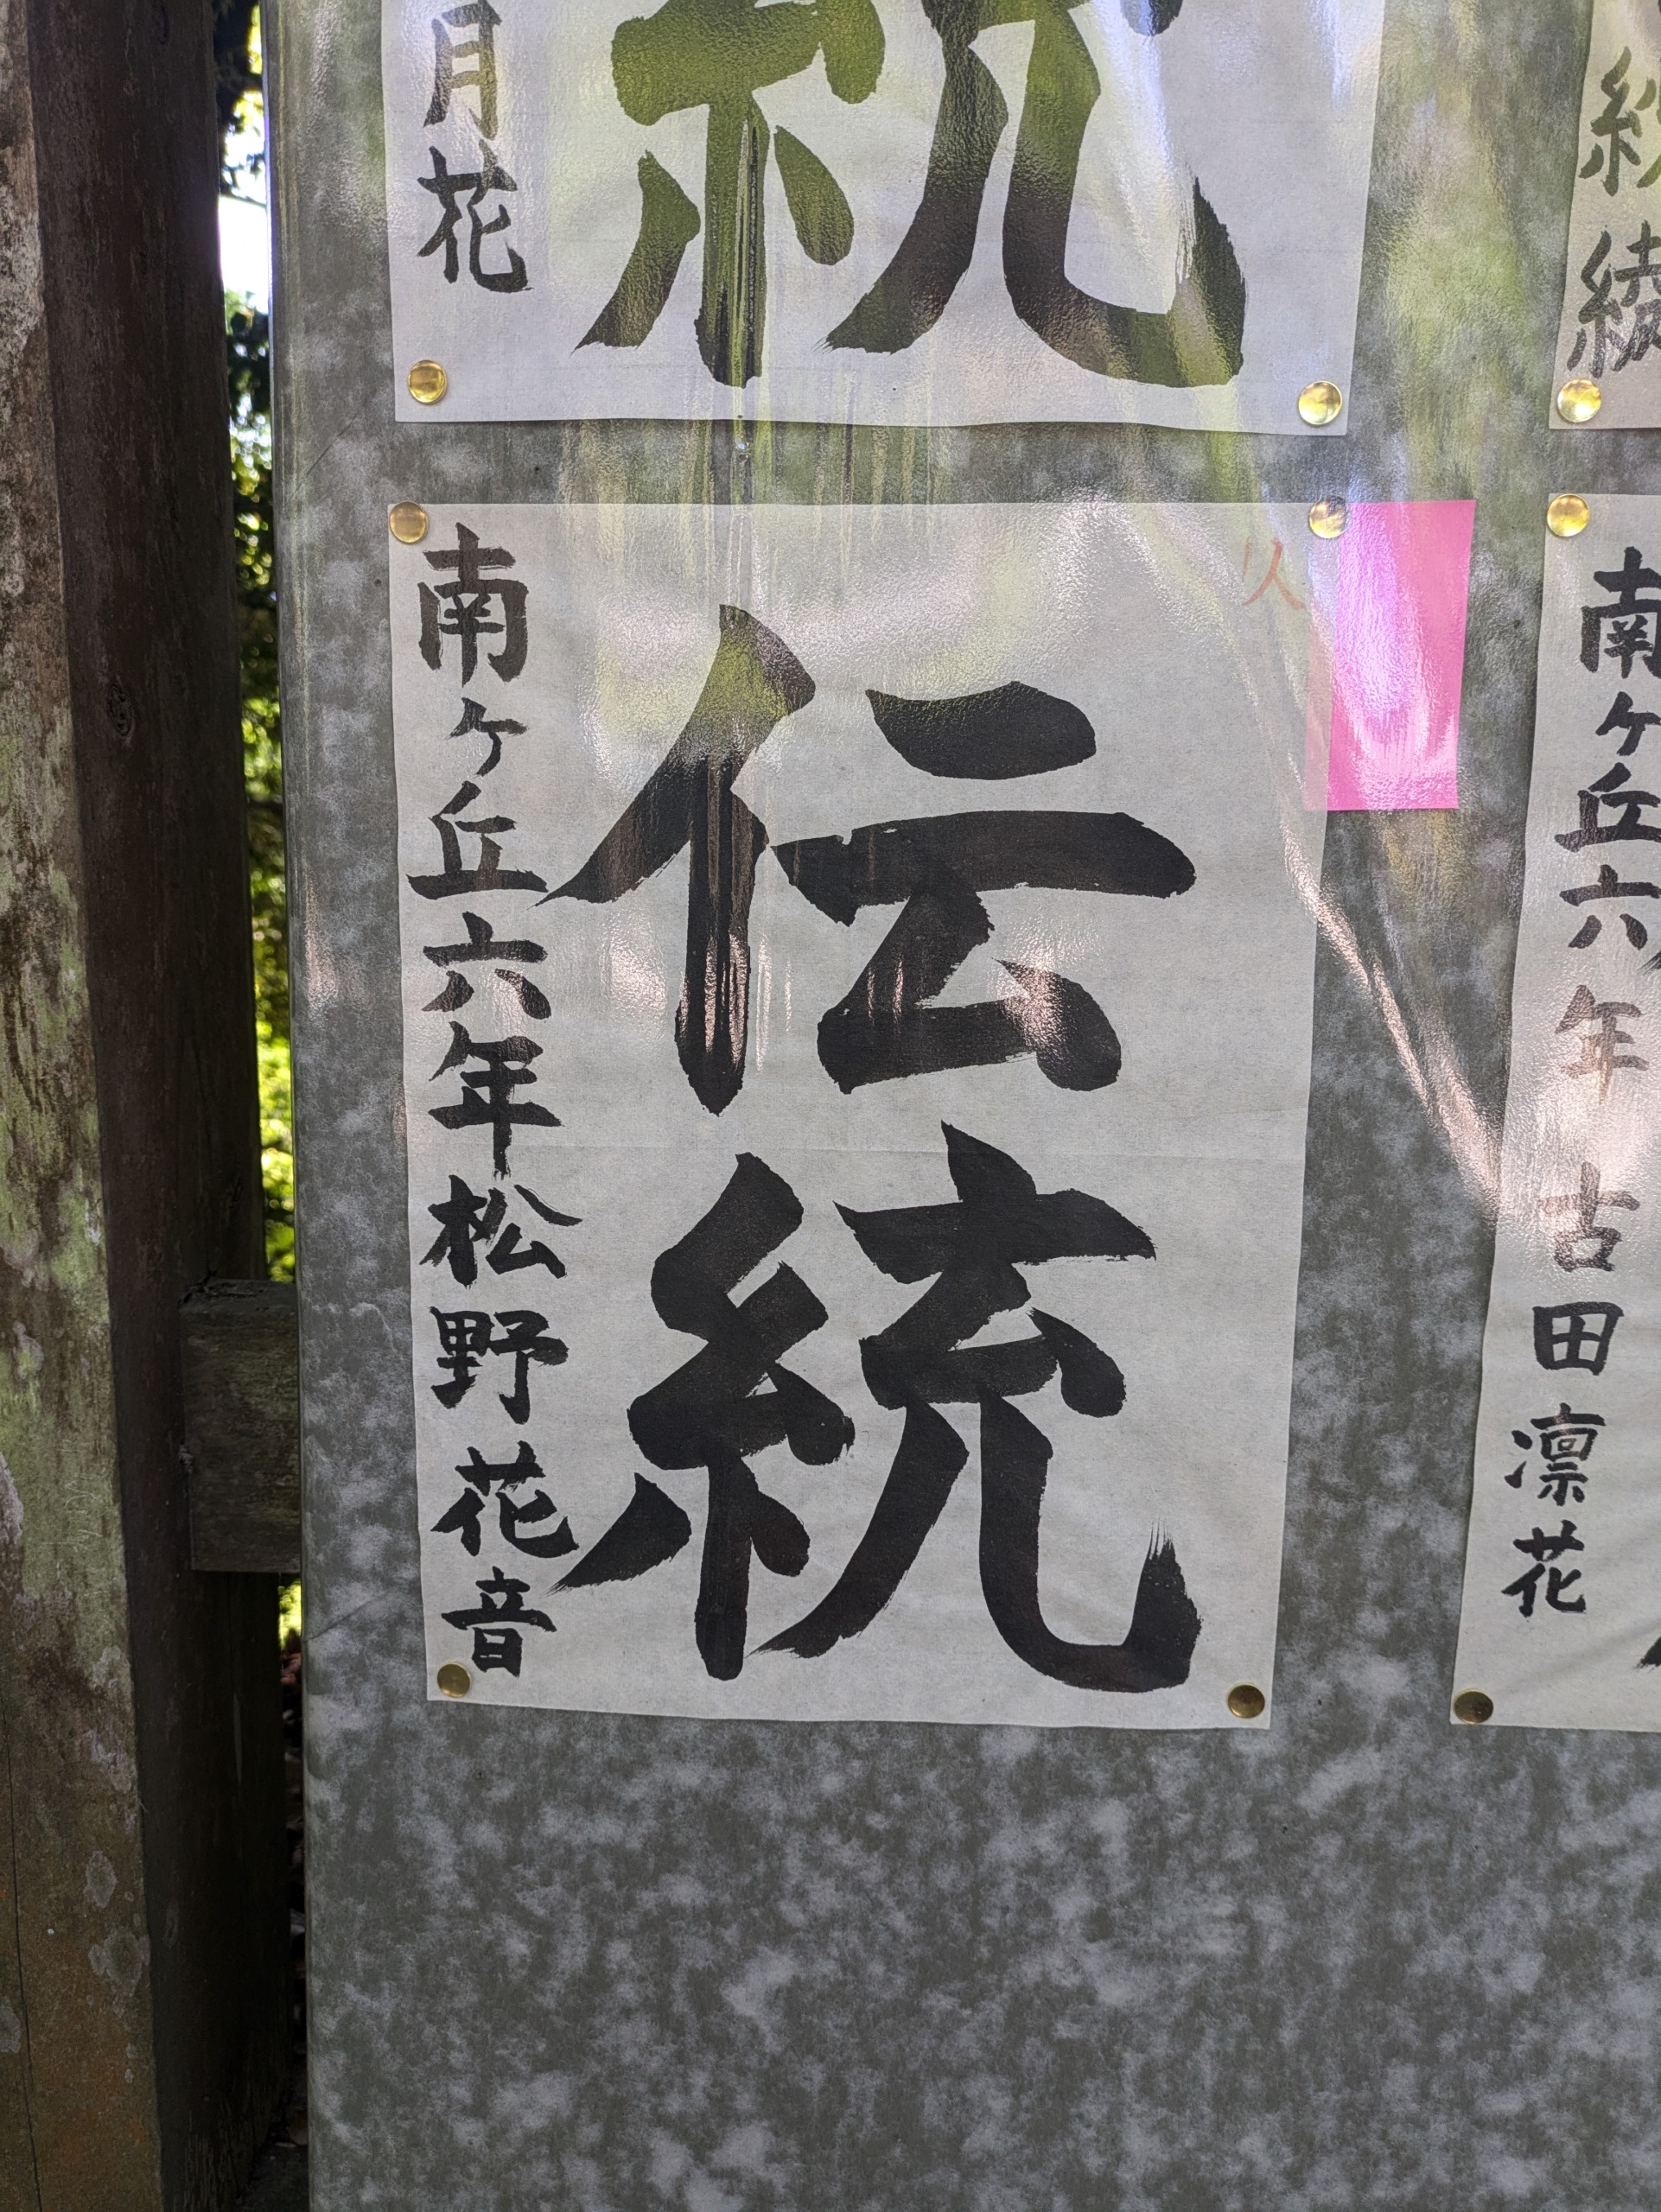 統
月花
伝統
南ヶ丘六年松野花音
南ヶ丘六年古田凛花